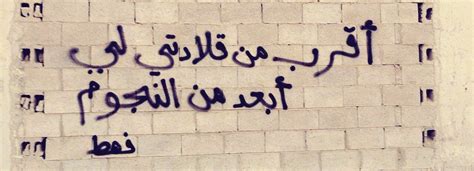 أقرب من قلادتي لي
أبعد من النجوم
فقط